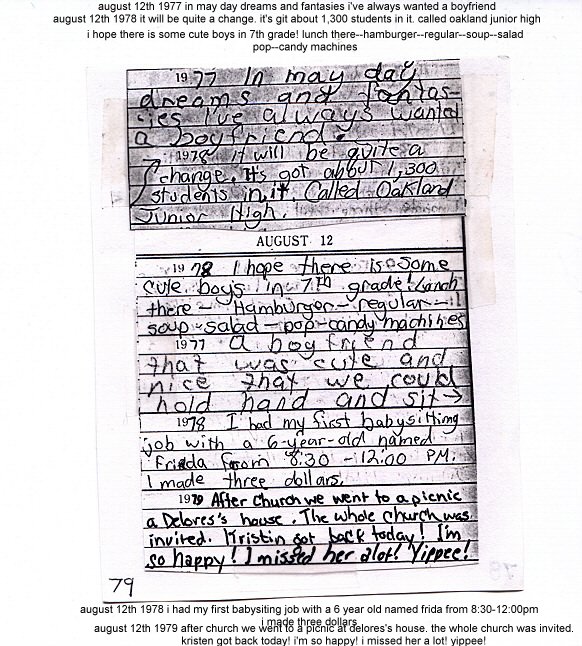 august 12th 1977 in may day dreams and fantasies i've always wanted a boyfriend
august 12th 1978 it will be quite a change. it's git about 1,300 students in it. called oakland junior high
i hope there is some cute boys in 7th grade! lunch there--hamburger--regular--soup--salad
pop--candy machines
1977 In may day
dreams and fantas-
ies I've always wanted
a boyfriend.
1978 it will be quite a
change. It's got about 1,300
students in it. Called Oakland
Junior High.
AUGUST 12
1978 I hope there is some
cute boys in 7th grade! Lunch
there - Hamburger - regular -
soup - salad - pop - candy machines
1977 a boyfriend
that was cute and
nice that we could
hold hand and sit→
1978 I had my first babysitting
job with a 6-year-old named
Frida from 8:30 - 12:00 P.M.
I made three dollars.
1979 After Church we went to a picnic
a Delores's house. The whole church was
invited. Kristin got back today! I'm
so happy! I missed her alot! Yippee!
79
august 12th 1978 i had my first babysiting job with a 6 year old named frida from 8:30-12:00pm
i made three dollars
august 12th 1979 after church we went to a picnic at delores's house. the whole church was invited.
kristen got back today! i'm so happy! i missed her a lot! yippee!